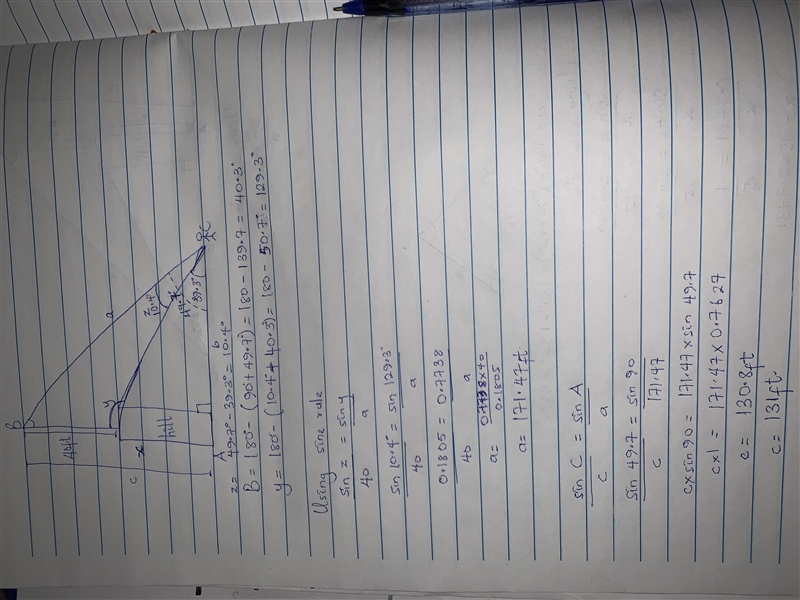 B
40ft
a
y
z
10.4°
49.7°
39.3°
C
x
hill
c
A
b
z = 49.7° - 39.3° = 10.4°
B = 180° - (90 + 49.7°) = 180 - 139.7 = 40.3°
y = 180° - (10.4° + 40.3) = 180 - 50.7° = 129.3°
Using sine rule
sin z = sin y
40 a
sin 10.4° = sin 129.3°
40 a
0.1805 = 0.7738
40 a
a = 0.7738 x 40
0.1805
a = 171.47 ft
sin C = sin A
c a
sin 49.7 = sin 90
c 171.47
c x sin 90 = 171.47 x sin 49.7
c x 1 = 171.47 x 0.7627
c = 130.8 ft
c = 131 ft.